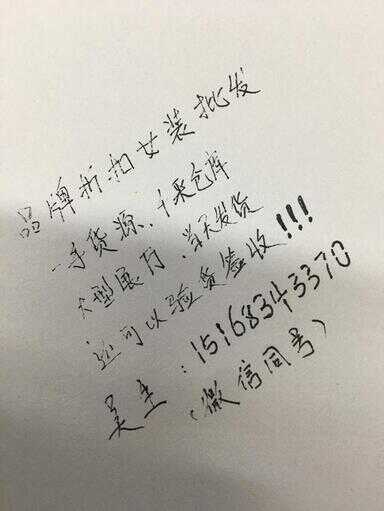 品牌折扣女装批发
一手货源、十来仓库
大型展厅、当天发货
还可以验货签收!!!
吴生：15168343370
（微信同号）